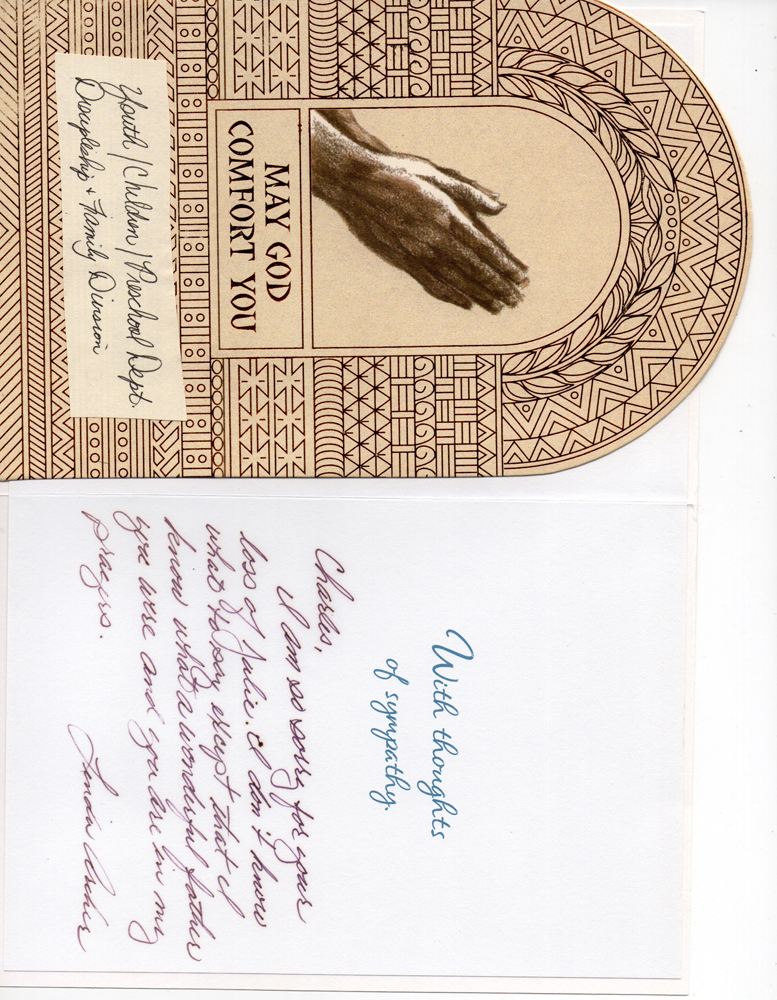 MAY GOD
COMFORT YOU
Youth/Children/Preschool Dept.
Discipleship + Family Division
With thoughts
of sympathy.
Charles,
I am so sorry for your
loss of Julie. I don't know
what to say except that I
know what a wonderful father
you were and you are in my
prayers.
Linda